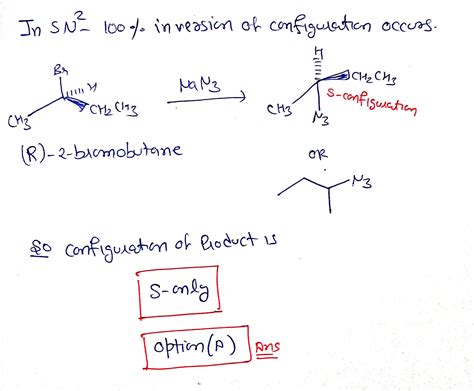 In SN2- 100% inversion of configuration occurs.
Br
H
CH3
CH2CH3
NaN3
H
CH2CH3
S-configuration
CH3
N3
(R)-2-bromobutane
OR
N3
So configuration of Product is
S-only
option(A) Ans